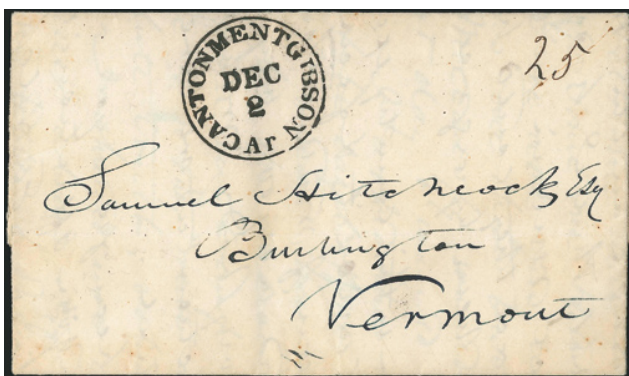 CANTONMENT GIBSON
DEC
2
Ar
25
Samuel Hitchcock, Esq
Burlington
Vermont